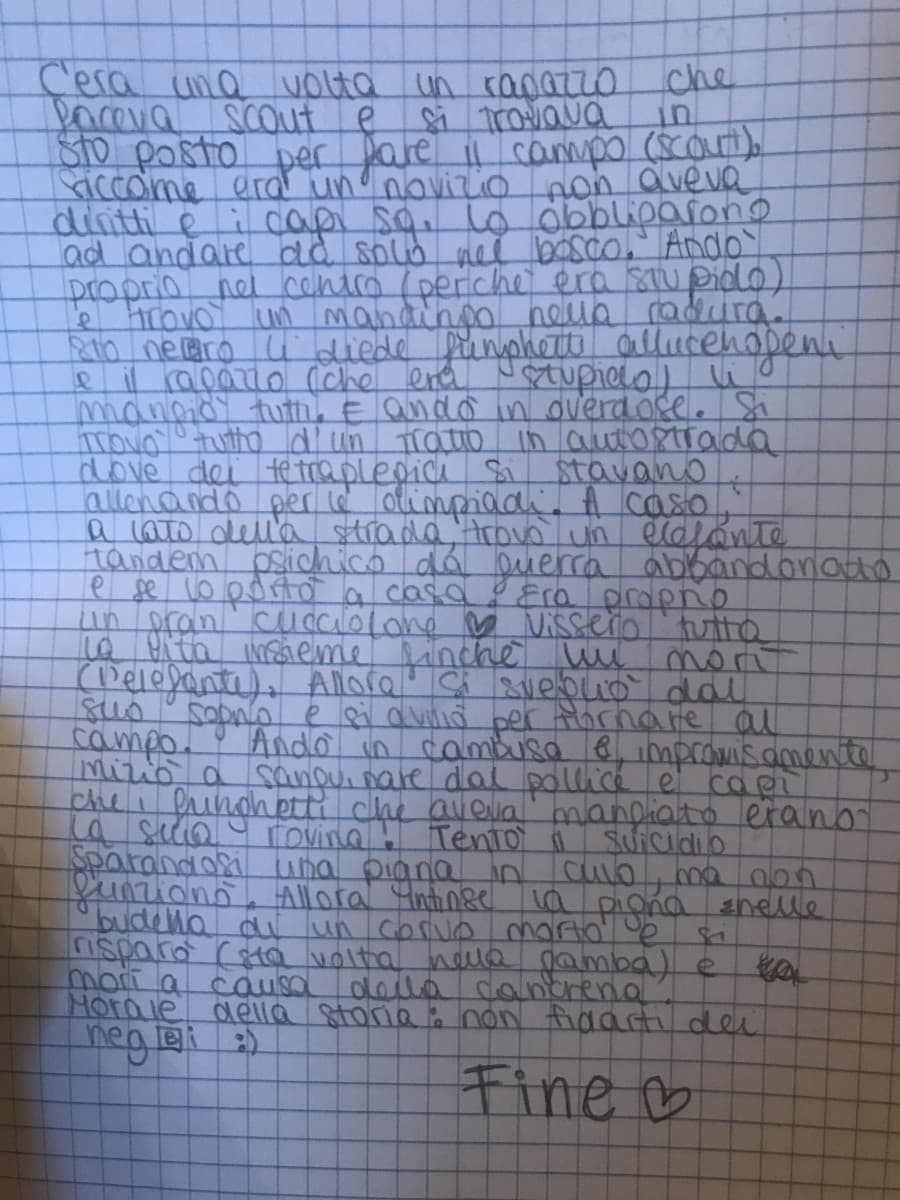 C'era una volta un ragazzo che
faceva scout e si trovava in
sto posto per fare il campo (scout).
Siccome era un novizio non aveva
diritti e i capi sq. lo obbligarono
ad andare da solo nel bosco. Andò
proprio nel centro (perché era stupido)
e trovò un mandingo nella radura.
Sto negro li diede funghetti allucenogeni
e il ragazzo (che era stupido) li
mangiò tutti. E andò in overdose. Si
trovò tutto d'un tratto in autostrada
dove dei tetraplegici si stavano
allenando per le olimpiadi. A caso,
a lato della strada, trovò un elefante
tandem psichico da guerra abbandonato
e se lo portò a casa. Era proprio
un gran cucciolone ♥ Vissero tutta
la vita insieme finché lui morì
(l'elefante). Allora si svegliò dal
suo sogno e si avviò per tornare al
campo. Andò in cambusa e, improvvisamente,
iniziò a sanguinare dal pollice e capì
che i funghetti che aveva mangiato erano
la sua rovina! Tentò il suicidio
sparandosi una pigna in culo, ma non
funzionò. Allora intinse la pigna nelle
budella di un corvo morto e si
risparò (sta volta nella gamba) e
morì a causa della cancrena.
Morale della storia: non fidarti dei
negri :)
Fine ♡